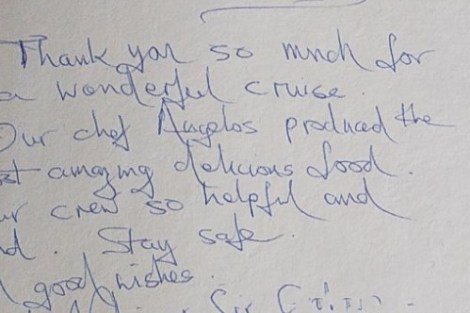 Thank you so much for
a wonderful cruise.
Our chef Angelos produced the
amazing delicious food.
crew so helpful and
. Stay safe.
good wishes.